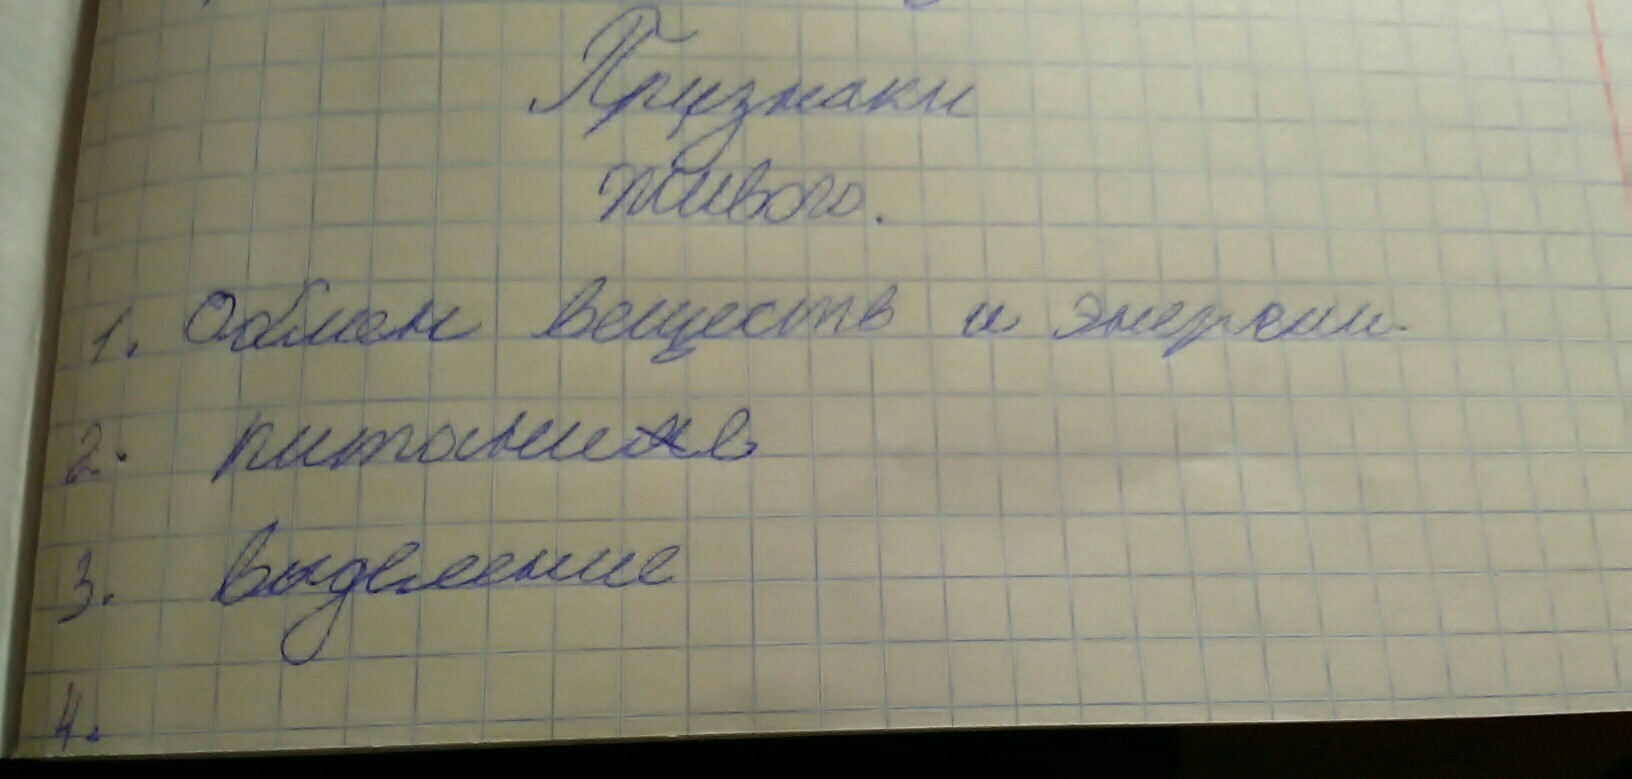 Признаки
живого.
1. Обмен веществ и энергии.
2. питание
3. выделение
4.